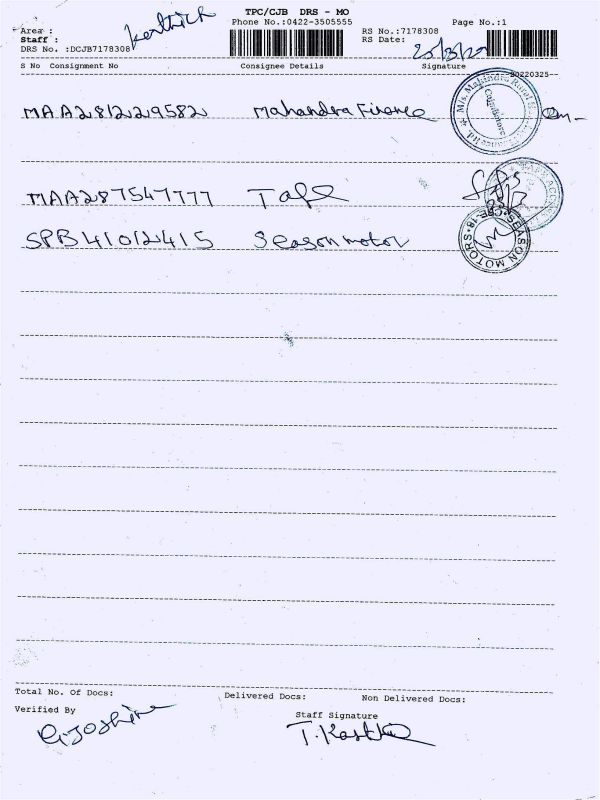 TPC/CJB DRS - MO
Phone No.:0422-3505555
Page No.:1
Area :
Karthick
Staff :
DRS No. :DCJB7178308
RS No.:7178308
RS Date:
S No Consignment No Consignee Details Signature
20220325
MAA2812229582 Mahandra Finance
MAA287547777 Tafe
SPB41012415 Season motor
SEASON MOTORS CBE-18
Total No. Of Docs: Delivered Docs: Non Delivered Docs:
Verified By
Staff Signature